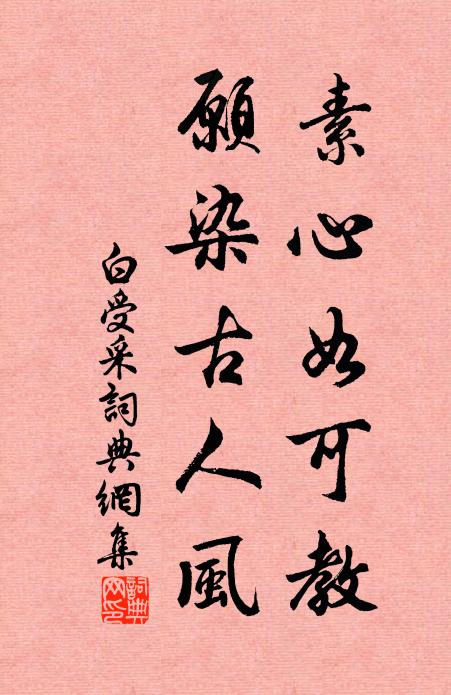 素心如可教
願染古人風
白受采詞典網集
詞典網印